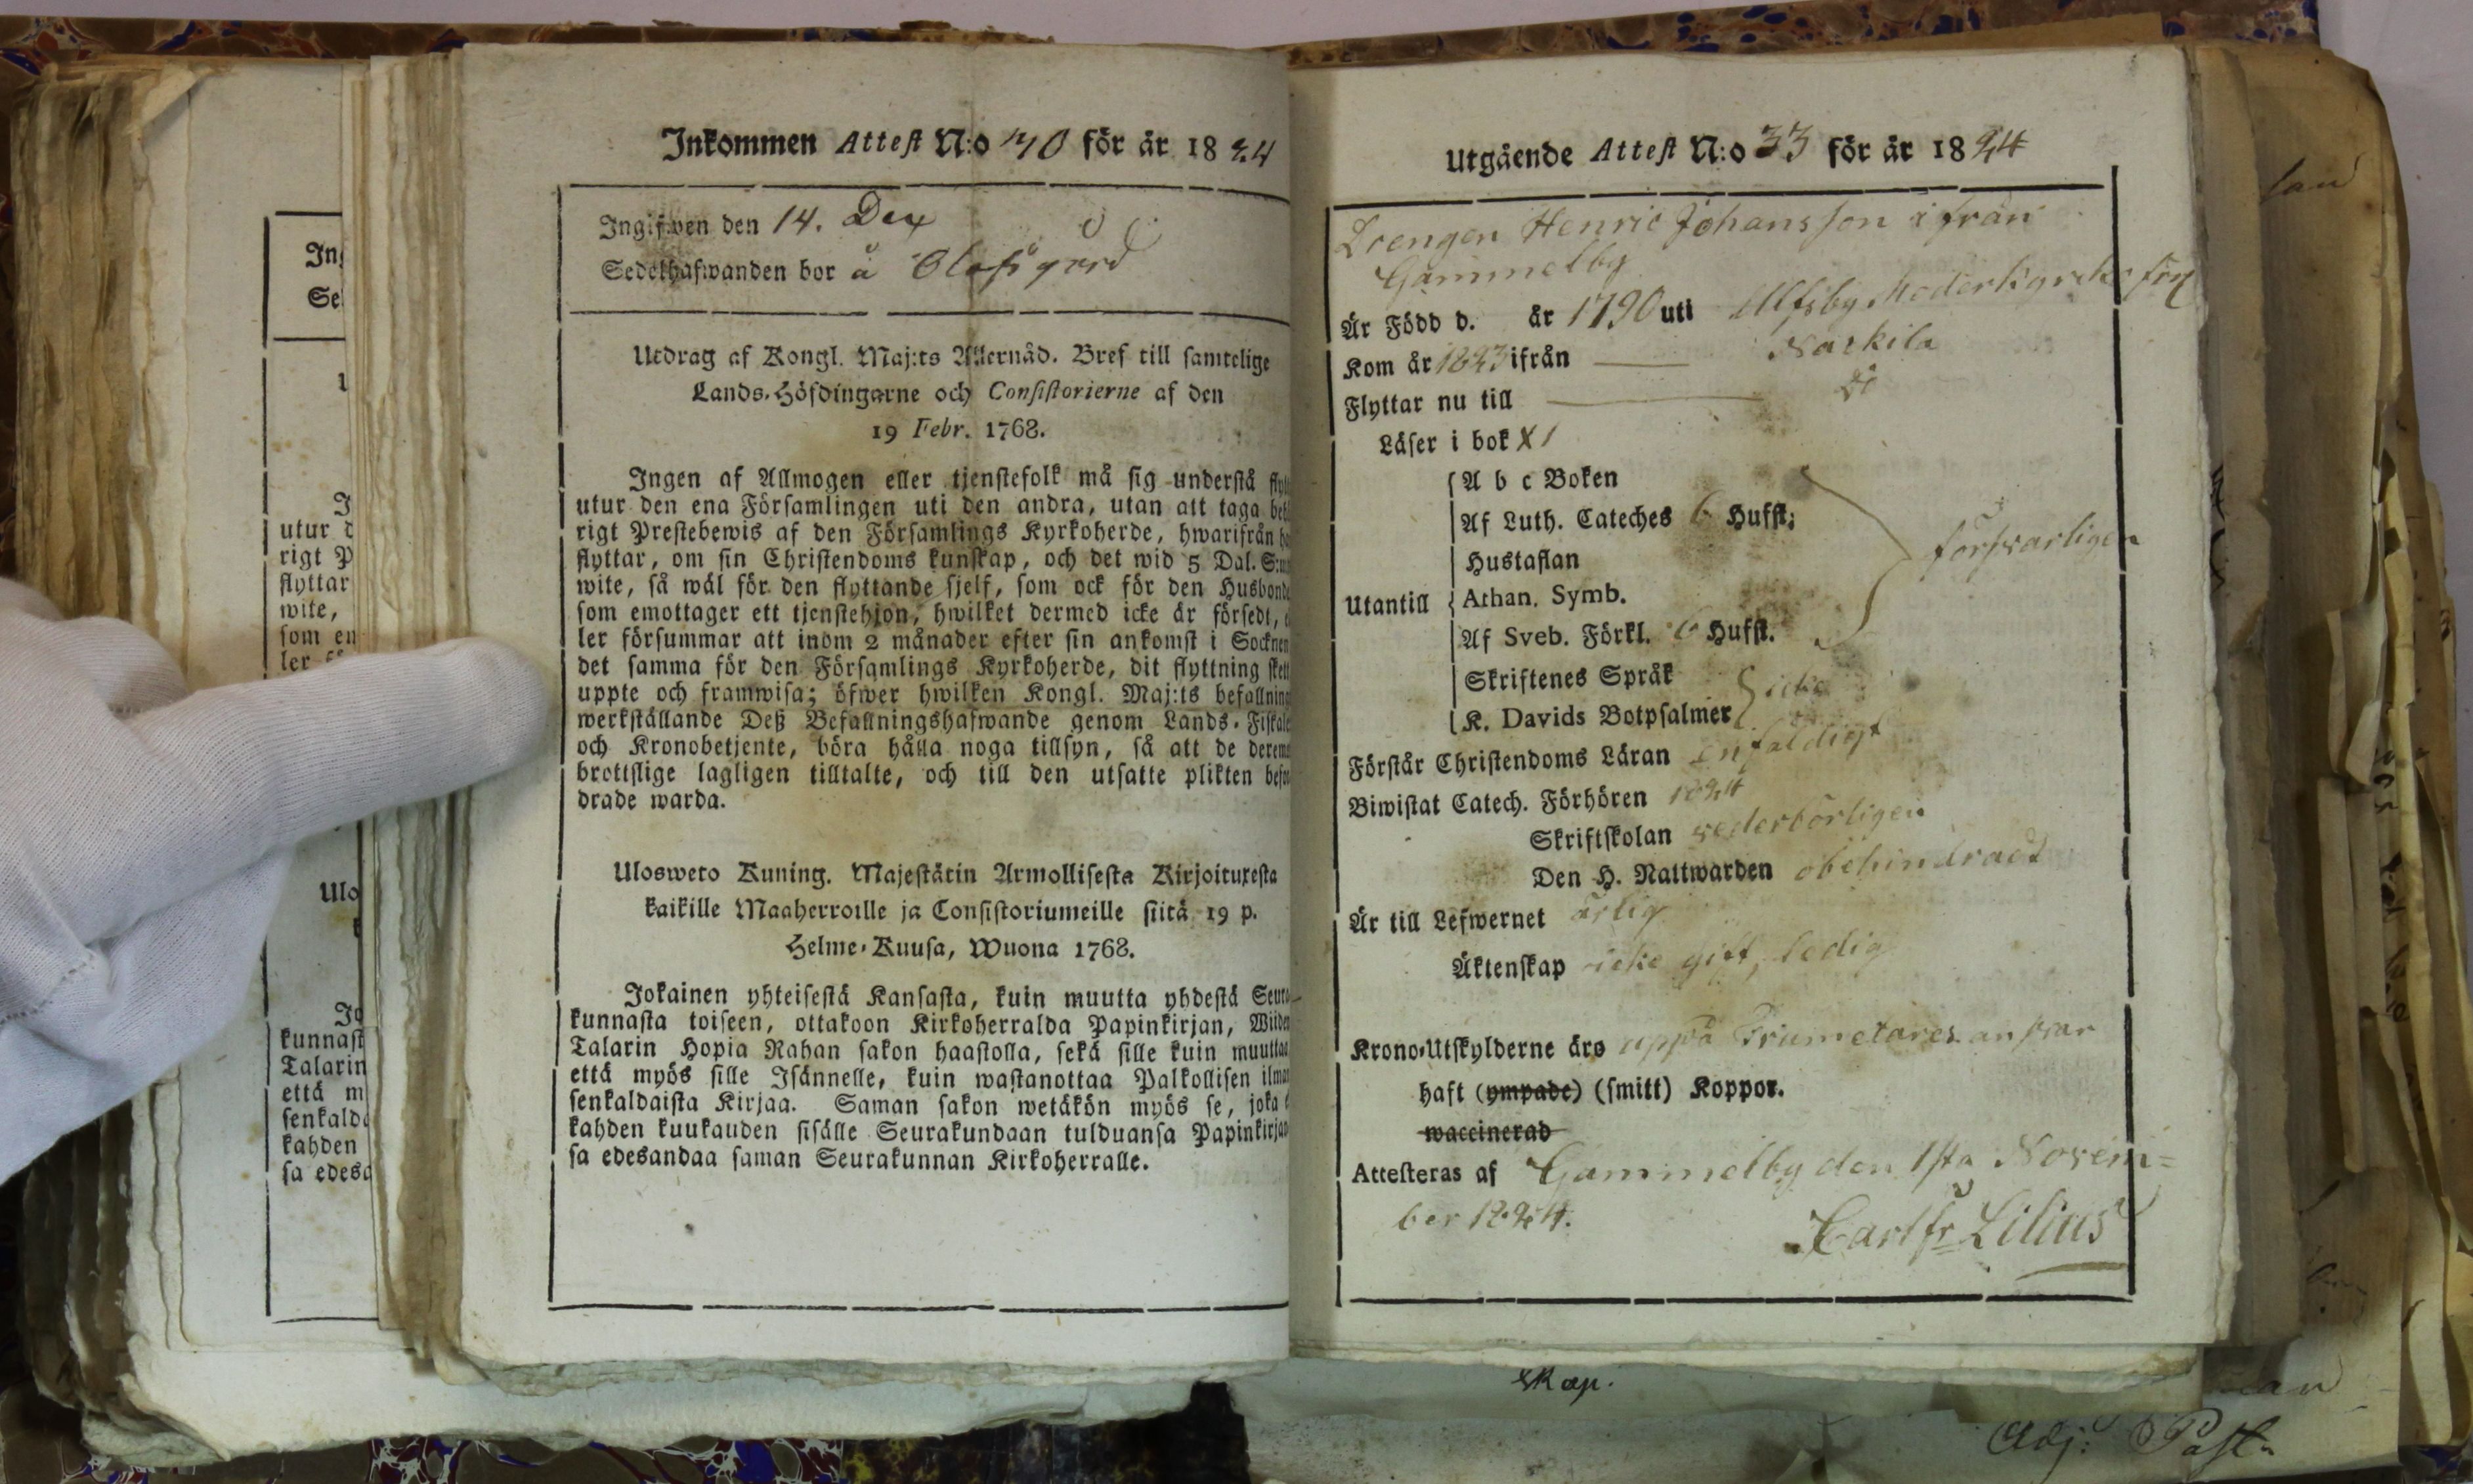 Inkommen Attest N:o 40 för år 1824
Ingifwen den 14. Dec
Sedelhafwanden bor å Olofsgård
Utdrag af Kongl. Maj:ts Allernåd. Bref till samtelige
Lands-Höfdingarne och Consistorierne af den
19 Febr. 1768.
Ingen af Allmogen eller tjenstefolk må sig understå
utur den ena Församlingen uti den andra, utan att taga
rigt Prestebewis af den Församlings Kyrkoherde, hwarifrån
flyttar, om sin Christendoms kunskap, och det wid 5 Dal. S:m
wite, så wäl för den flyttande sjelf, som ock för den Husbonde
som emottager ett tjenstehjon, hwilket dermed icke är försedt,
ler försummar att inom 2 månader efter sin ankomst i Socknen
det samma för den Församlings Kyrkoherde, dit flyttning skett
uppte och framwisa; öfwer hwilken Kongl. Maj:ts befallning
werkställande Deß Befallningshafwande genom Lands-Fiskale
och Kronobetjente, böra hålla noga tillsyn, så att de derem
brottslige lagligen tilltalte, och till den utsatte plikten befor
drade warda.
Ulosweto Kuning. Majestätin Armollisesta Kirjoituxesta
kaikille Maaherroille ja Consistoriumeille siitä 19 p.
Helme-Kuusa, Wuona 1768.
Jokainen yhteisestä Kansasta, kuin muutta yhdestä Seura
kunnasta toiseen, ottakoon Kirkoherralda Papinkirjan, Wiiden
Talarin Hopia Rahan sakon haastolla, sekä sille kuin muuttaa
että myös sille Isännelle, kuin wastanottaa Palkollisen ilman
senkaldaista Kirjaa. Saman sakon wetäkön myös se, joka
kahden kuukauden sisälle Seurakundaan tulduansa Papinkirjan
sa edesandaa saman Seurakunnan Kirkoherralle.
Utgående Attest N:o 33 för år 1824
Drengen Henric Johansson ifrån
Gammelby
Är Född d. år 1790 uti Ulfsby Moderkyrko
Kom år 1823 ifrån Nackila
Flyttar nu till Do
Läser i bok
A b c Boken
Af Luth. Cateches 6 Hufst;
Hustaflan
försvarligen
Utantill Athan. Symb.
Af Sveb. Förkl. 6 Hufst.
Skriftenes Språk
icke
K. Davids Botpsalmer
Förstår Christendoms Läran enfaldigt
Biwistat Catech. Förhören 1824
Skriftskolan vederbörligen
Den H. Nattwarden obehindradt
Är till Lefwernet ärlig
Äktenskap icke gift, ledig
Krono-Utskylderne äro uppå ansvar
haft (ympade) (smitt) Koppor.
waccinerad
Attesteras af Gammelby den 1sta Novem=
ber 1824.
Carl Fr Lilius
In
Se
utur d
rigt P
flyttar
wite,
som en
Ulo
kunnast
Talarin
että m
senkalda
kahden
sa edesa
skap.
Adj: Past.